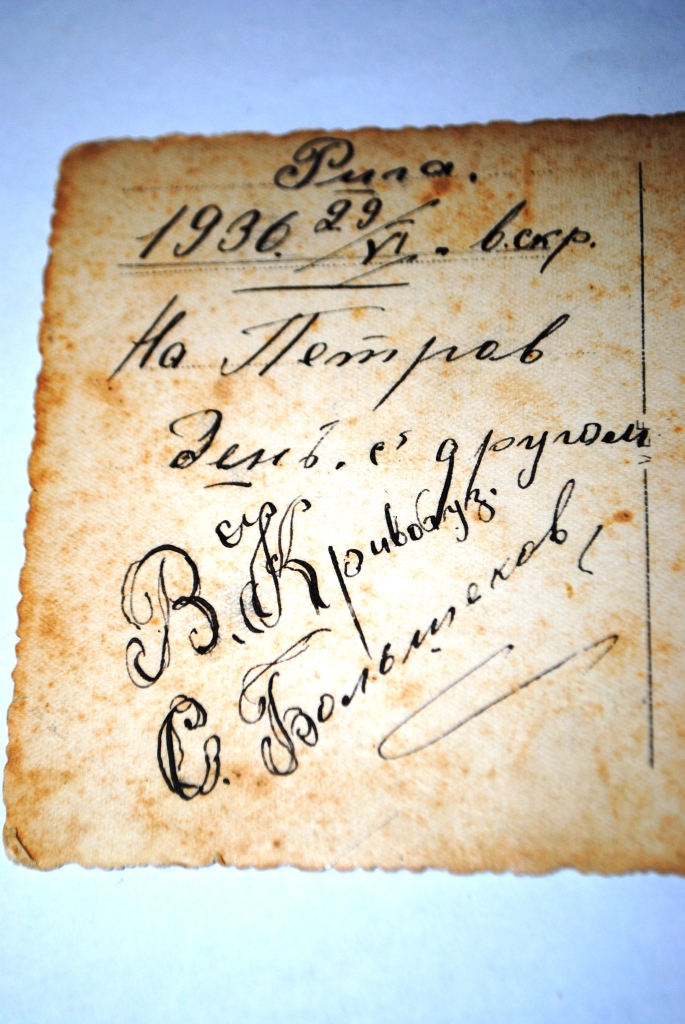 Рига.
1936. 29/VI. в.скр.
На Петров
День. с другом
В. Кривобуз.
С. Большеков